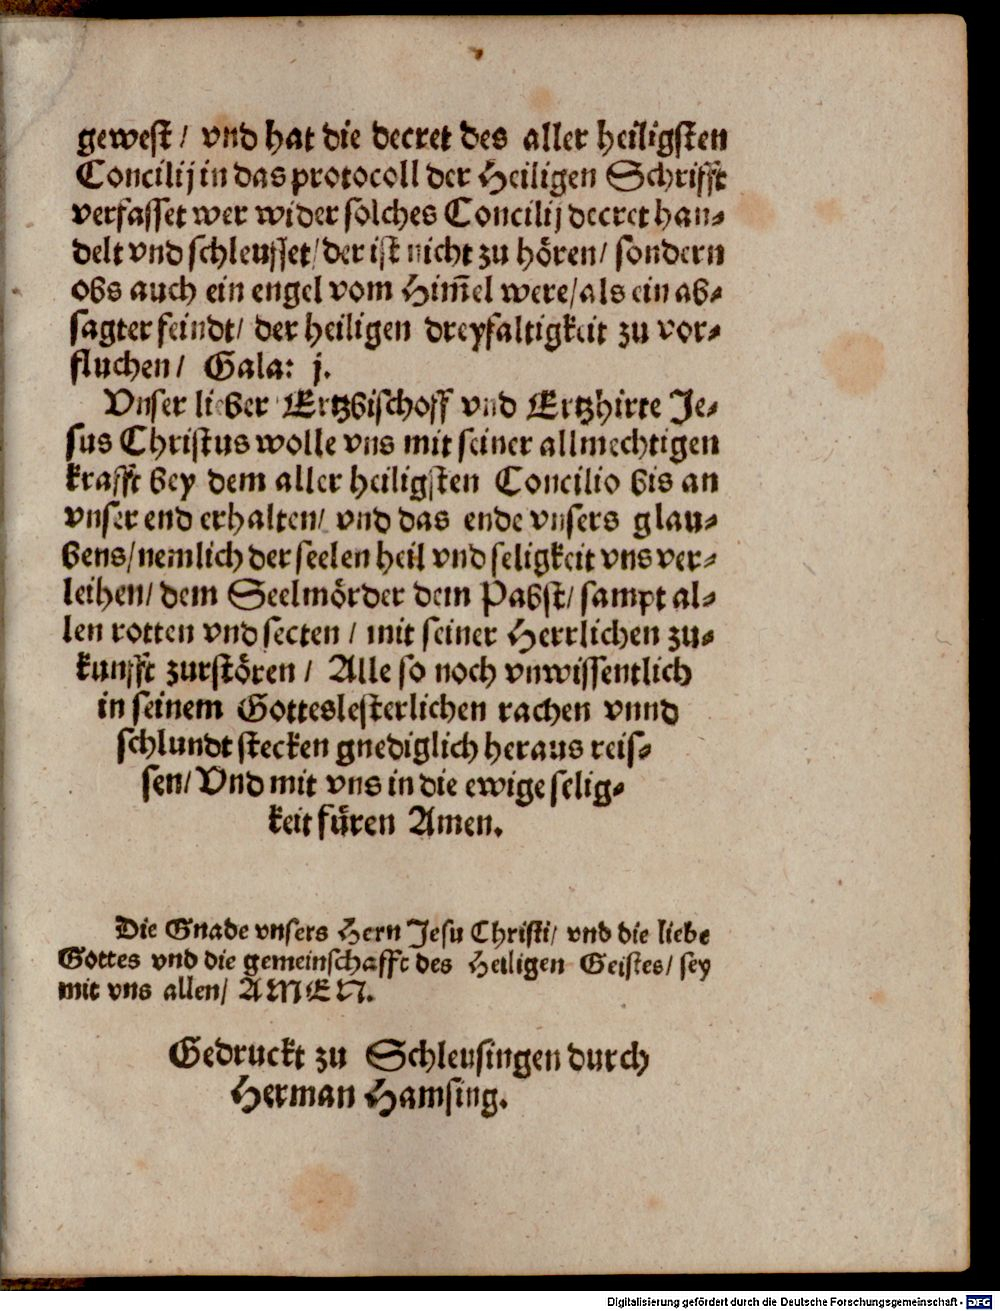 gewest / vnd hat die decret des aller heiligsten
Concilij in das protocoll der Heiligen Schrifft
verfasset wer wider solches Concilij decret han⸗
delt vnd schleusset / der ist nicht zu hören / sondern
obs auch ein engel vom Him̃el were / als ein ab⸗
sagter feindt / der heiligen dreyfaltigkeit zu vor⸗
fluchen / Gala: j.
Vnser lieber Ertzbischoff vnd Ertzhirte Je⸗
sus Christus wolle vns mit seiner allmechtigen
krafft bey dem aller heiligsten Concilio bis an
vnser end erhalten / vnd das ende vnsers glau⸗
bens / nemlich der seelen heil vnd seligkeit vns ver⸗
leihen / dem Seelmörder dem Pabst / sampt al⸗
len rotten vnd secten / mit seiner Herrlichen zu⸗
kunfft zurstören / Alle so noch vnwissentlich
in seinem Gotteslesterlichen rachen vnnd
schlundt stecken gnediglich heraus reis⸗
sen / Vnd mit vns in die ewige selig⸗
keit fuͤren Amen.
Die Gnade vnsers Hern Jesu Christi / vnd die liebe
Gottes vnd die gemeinschafft des Heiligen Geistes / sey
mit vns allen / AMEN.
Gedruckt zu Schleusingen durch
Herman Hamsing.
Digitalisierung gefördert durch die Deutsche Forschungsgemeinschaft - DFG